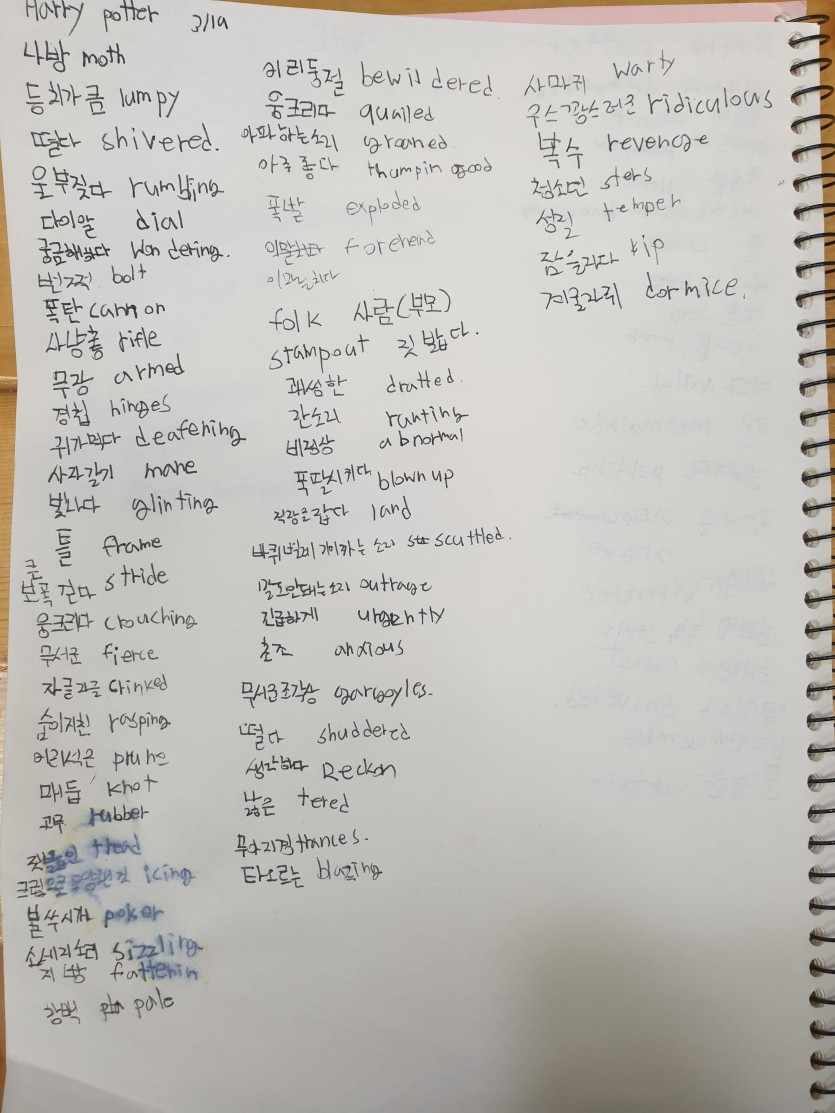 Harry potter 3/19
나방 moth
등치가 큼 lumpy
떨다 shivered.
울부짖다 rumbling
다이알 dial
궁금해하다 wondering.
번쩍 bolt
폭탄 cannon
사냥총 rifle
무장 armed
경첩 hinges
귀가먹다 deafening
사자갈기 mane
빛나다 glinting
틀 frame
큰 보폭 걷다 stride
웅크리다 crouching
무서운 fierce
자글자글 crinked
숨이지친 rasping
어리석은 prune
매듭 knot
고무 rubber
짓밟은 tread
크림으로 모양낸것 icing
불쑤시개 poker
소세지소리 sizzling
지방 fattenin
창백 pale
어리둥절 bewildered.
웅크리다 quailed
아파하는소리 groaned
아주 좋다 thumpin good
폭발 exploded
이말하다 forehead
이과말하다
folk 사람(부모)
stampout 짓밟다.
괘씸한 dratted.
잔소리 ranting
비정상 abnormal
폭팔시키다 blown up
직장을잡다 land
바퀴벌레 기어가는 소리 scuttled.
말도안돼는소리 outrage
긴급하게 urgently
초조 anxious
무서운조각상 gargoyles.
떨다 shuddered
생각하다 Reckon
낡은 tered
무아지경 trances.
타오르는 blazing
사마귀 warty
우스꽝스러운 ridiculous
복수 revenge
청소년 sters
성질 temper
잠을자다 kip
겨울자쥐 dormice.